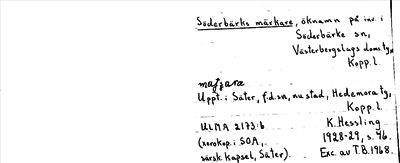 Söderbärke märkare, öknamn på inv. i
Söderbärke sn,
Västerbergslags doms.tg,
Kopp. l.
Uppt. i Säter, f.d.sn, nu stad, Hedemora tg,
Kopp. l.
ULMA 2173:6 K. Hessling
(xerokop. i SOA, 1928-29, s. 46.
särsk. kapsel, Säter). Exc. av T.B. 1968.